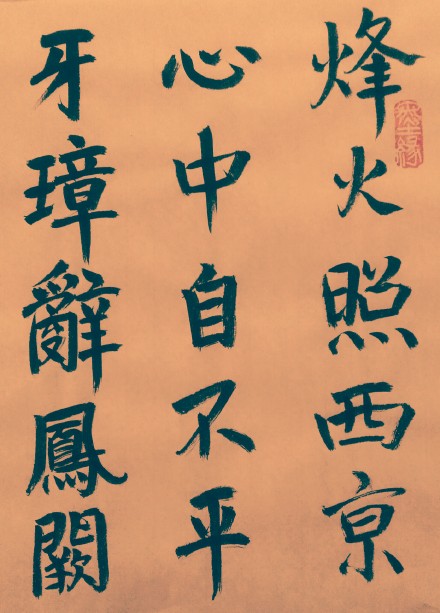 烽火照西京
心中自不平
牙璋辭鳳闕